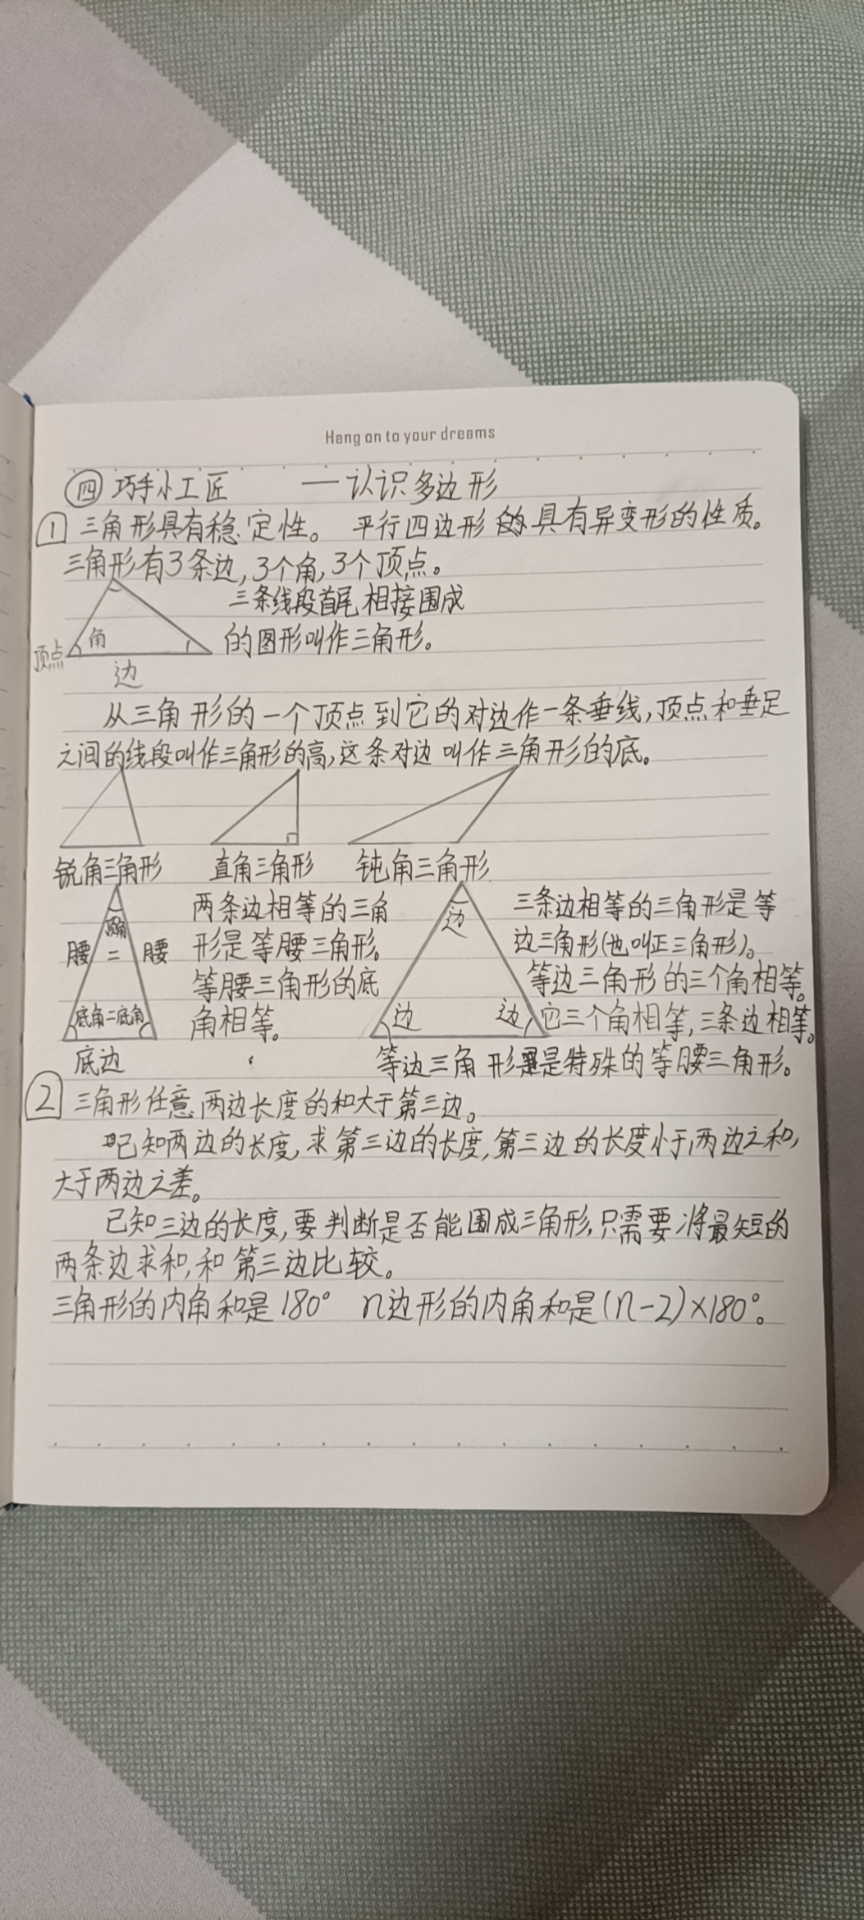 Hang on to your dreams
四 巧手小工匠 —认识多边形
1 三角形具有稳定性。 平行四边形具有异变形的性质。
三角形有3条边,3个角,3个顶点。
三条线段首尾相接围成
角
的图形叫作三角形。
顶点
边
从三角形的一个顶点到它的对边作一条垂线,顶点和垂足
之间的线段叫作三角形的高,这条对边叫作三角形的底。
锐角三角形 直角三角形 钝角三角形
两条边相等的三角
形是等腰三角形。
等腰三角形的底
角相等。
顶角
腰 = 腰
底角=底角
底边
边
边 边
三条边相等的三角形是等
边三角形(也叫正三角形)。
等边三角形的三个角相等。
它三个角相等,三条边相等。
等边三角形是特殊的等腰三角形。
2 三角形任意两边长度的和大于第三边。
已知两边的长度,求第三边的长度,第三边的长度小于两边之和,
大于两边之差。
已知三边的长度,要判断是否能围成三角形,只需要将最短的
两条边求和,和第三边比较。
三角形的内角和是180° n边形的内角和是(n-2)×180°。